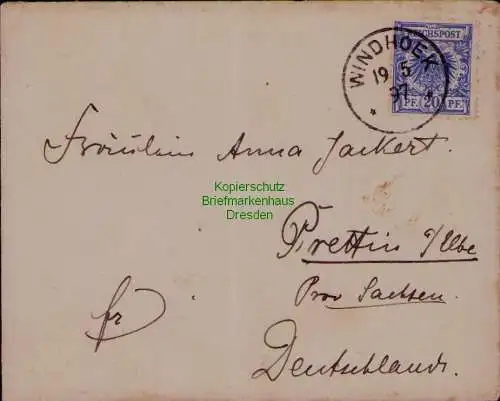 REICHSPOST
WINDHOEK
19 5
97
PF. 20 PF.
Fräulein Anna Jackert.
Kopierschutz
Briefmarkenhaus
Dresden
Prettin a/Elbe
Prov Sachsen.
fr
Deutschland.